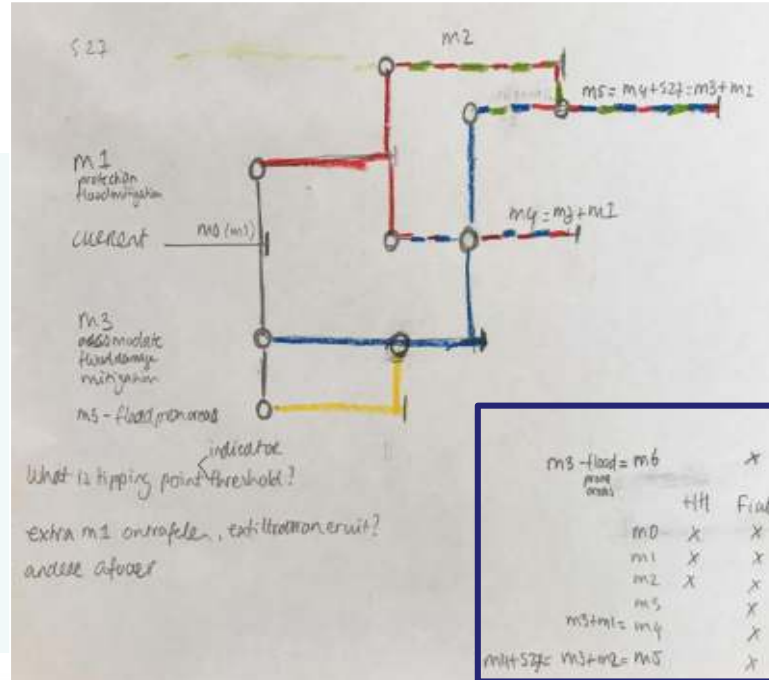 S27
m2
m5 = m4+S27 = m3+m2
m1
protection
flood mitigation
current
m0 (m3)
m4 = m3+m1
m3
accomodate
flood damage
mitigation
m3 - flood prone areas
indicator
What is tipping point threshold?
extra m1 ontrafelen, eruit?
andere afvoer
m3 - flood = m6 x
prone
areas
HH Fiat
m0 x x
m1 x x
m2 x x
m3 x
m3+m1 = m4 x
m4+S27 = m3+m2 = m5 x